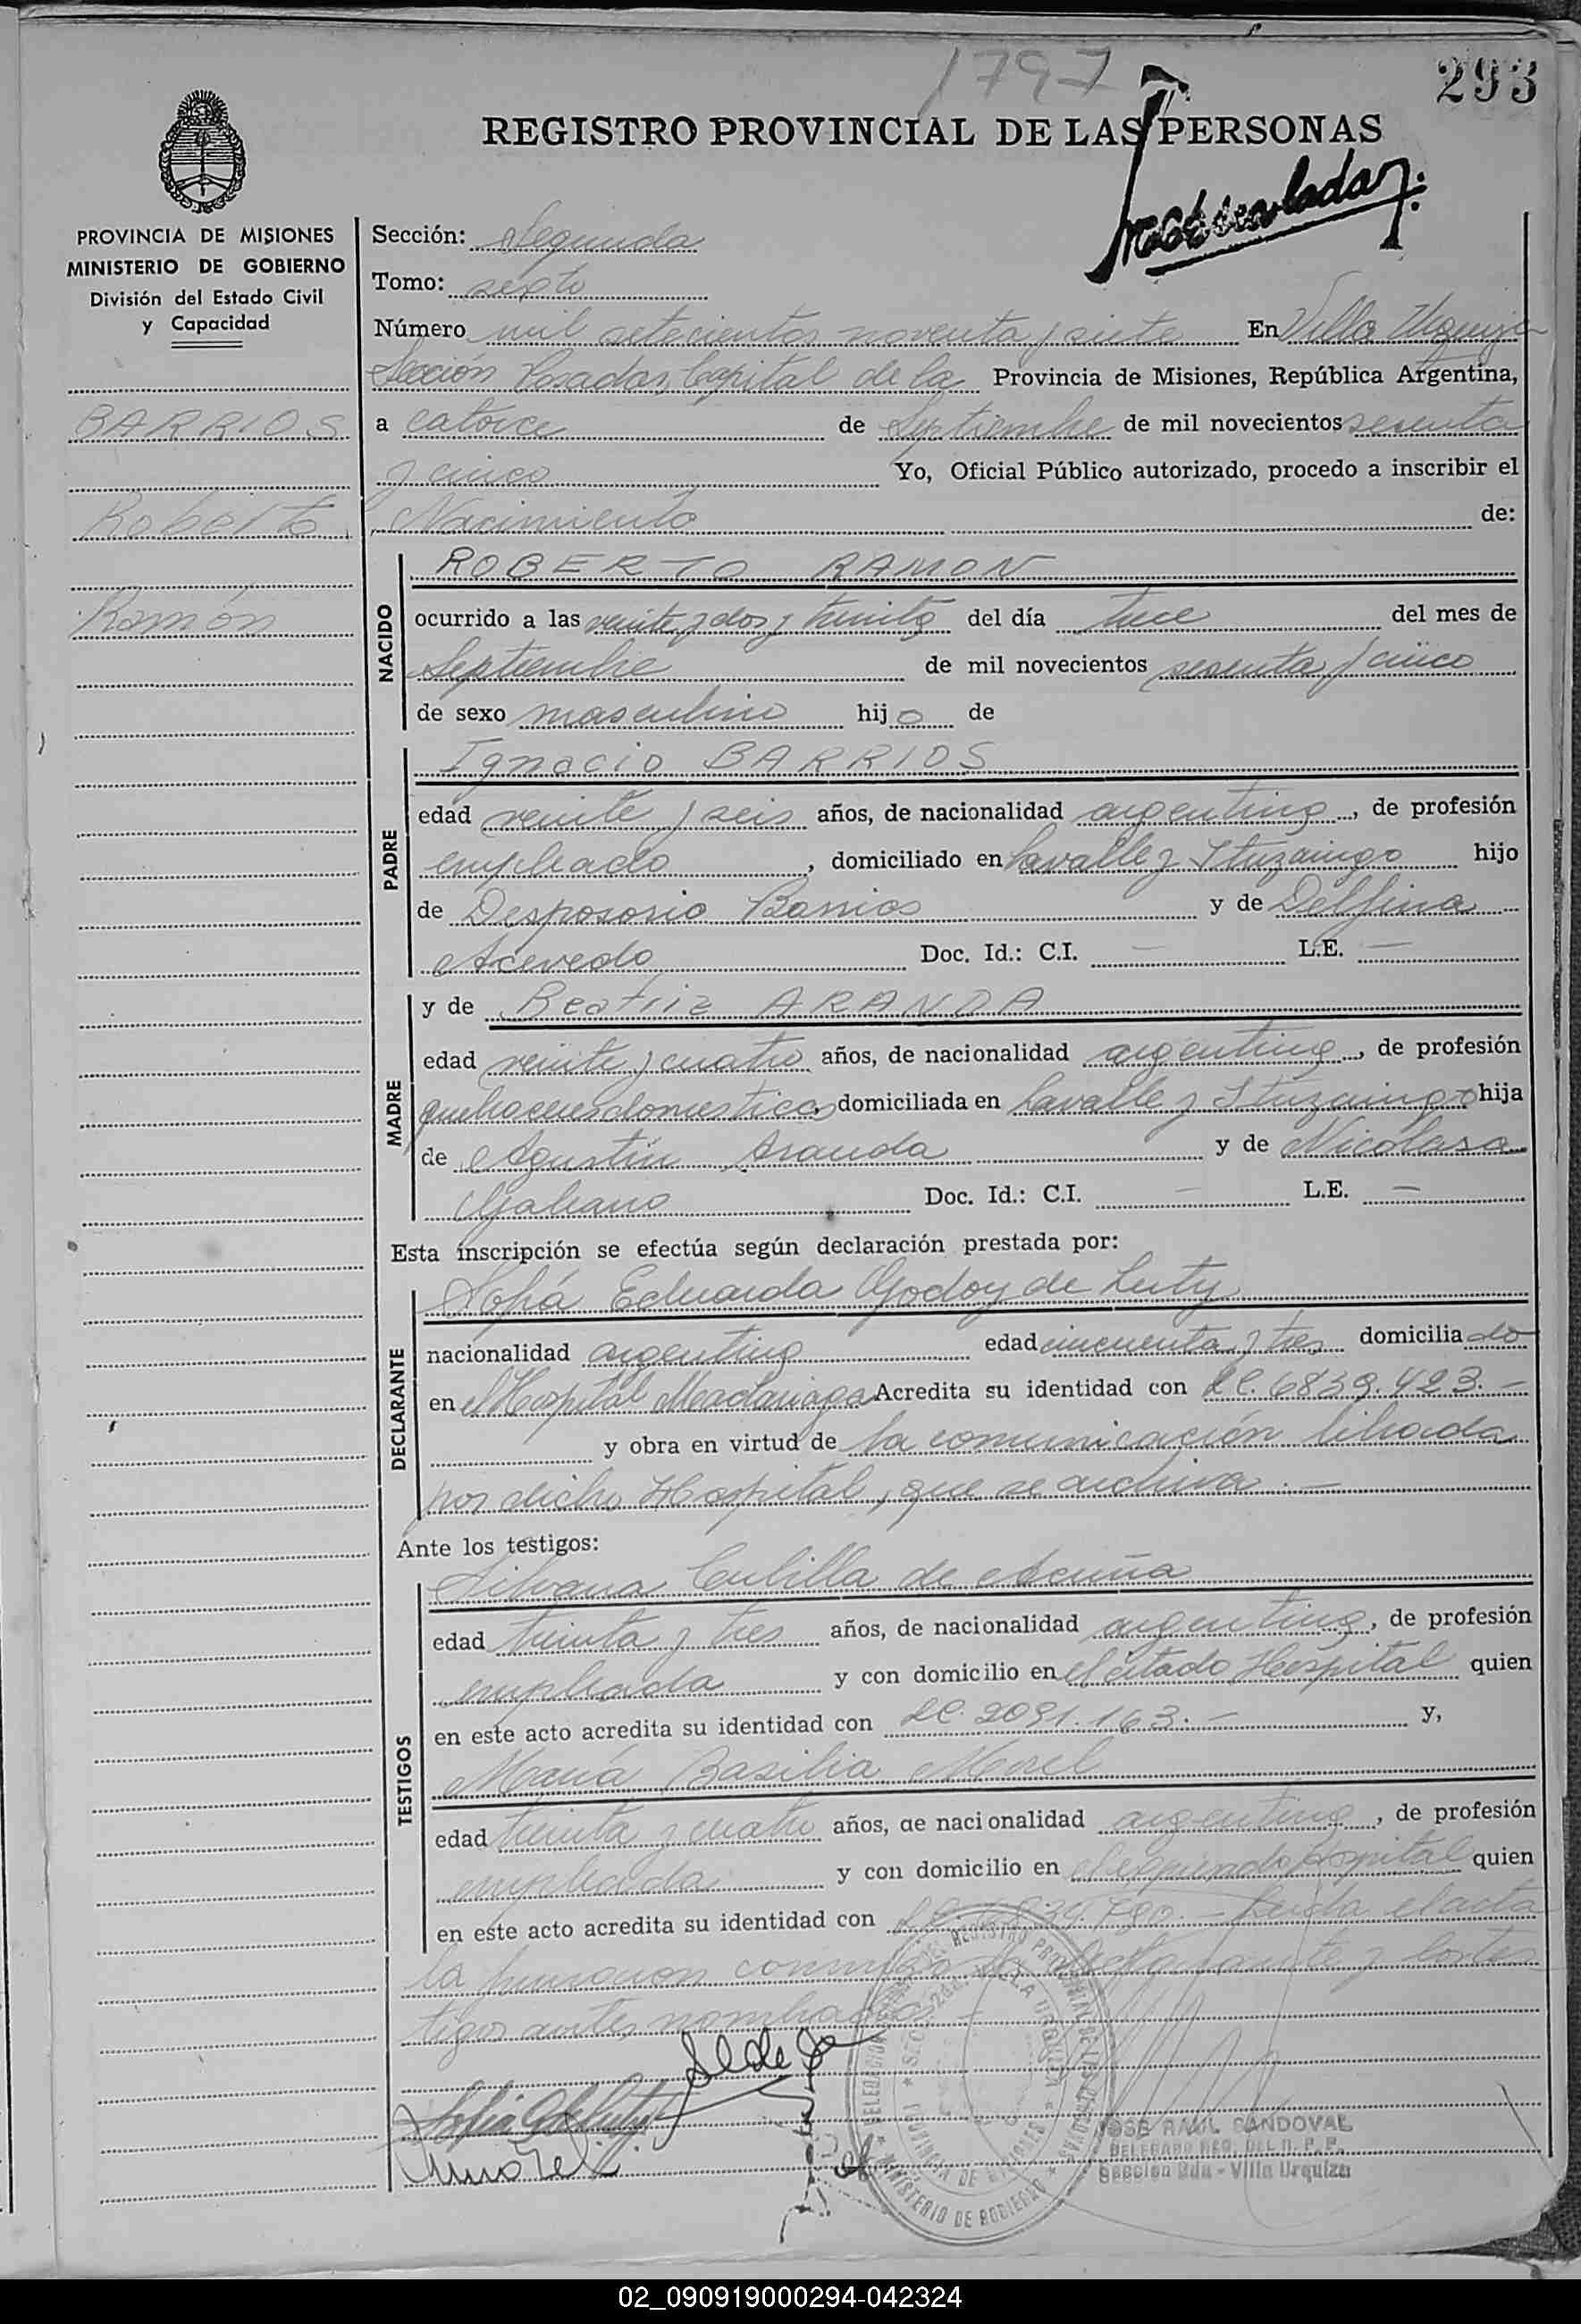 1797
293
REGISTRO PROVINCIAL DE LAS PERSONAS
PROVINCIA DE MISIONES
MINISTERIO DE GOBIERNO
División del Estado Civil
y Capacidad
BARRIOS
Roberto
Ramón
Sección: Segunda
Tomo: sexto
Número mil setecientos noventa y siete En Villa Urquiza
Sección Posadas, Capital de la Provincia de Misiones, República Argentina,
a catorce de Septiembre de mil novecientos sesenta
y cinco Yo, Oficial Público autorizado, procedo a inscribir el
Nacimiento de:
NACIDO
ROBERTO RAMON
ocurrido a las veinte y dos y treinta del día trece del mes de
Septiembre de mil novecientos sesenta y cinco
de sexo masculino hijo de
PADRE
Ignacio BARRIOS
edad veinte y seis años, de nacionalidad argentina, de profesión
empleado, domiciliado en Lavalle y Ituzaingo hijo
de Desposorio Barrios y de Delfina
Acevedo Doc. Id.: C.I. — L.E. —
MADRE
y de Beatriz ARANDA
edad veinte y cuatro años, de nacionalidad argentina, de profesión
quehaceres domesticos, domiciliada en Lavalle y Ituzaingo hija
de Agustín Aranda y de Nicolasa
Galeano Doc. Id.: C.I. — L.E. —
Esta inscripción se efectúa según declaración prestada por:
DECLARANTE
Sofía Eduarda Godoy de Luty
nacionalidad argentina edad cincuenta y tres domiciliado
en el Hospital Madariaga Acredita su identidad con LC. 6839.423.—
y obra en virtud de la comunicación librada
por dicho Hospital, que se archiva.—
Ante los testigos:
TESTIGOS
Silvana Cubilla de Acuña
edad treinta y tres años, de nacionalidad argentina, de profesión
empleada y con domicilio en el citado Hospital quien
en este acto acredita su identidad con LC. 2091.163.— y,
María Basilia Morel
edad treinta y cuatro años, de nacionalidad argentina, de profesión
empleada y con domicilio en el Hospital quien
en este acto acredita su identidad con LC Leída el acta
la firmaron conmigo la declarante y los tes
tigos antes nombrados.—
Sofia G de Luty
JOSE RAUL SANDOVAL
DELEGADO REG. DEL R. P. P.
Sección 2da - Villa Urquiza
02_090919000294-042324